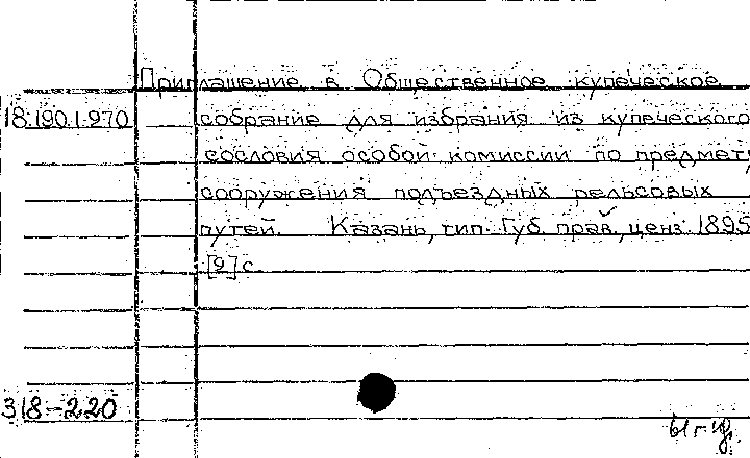 Приглашение в Общественное купеческое
18.190.1.970 собрание для избрания из купеческого
сословия особой комиссии по предмету
сооружения подъездных рельсовых
путей. Казань, тип. Губ. прав., ценз. 1895
[9] с.
318-220